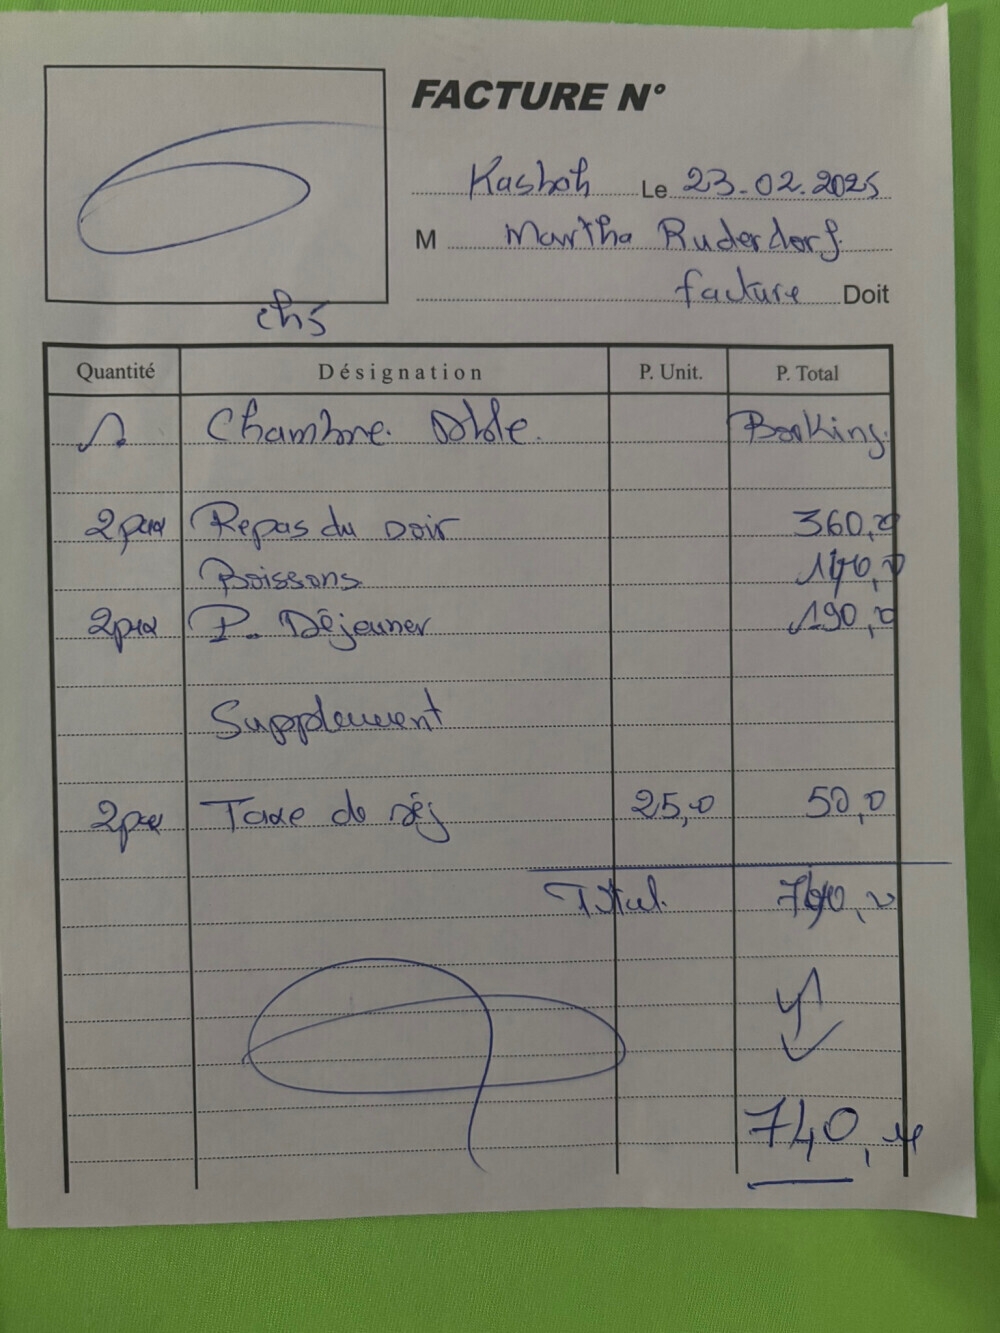 FACTURE N°
Kasbah Le 23.02.2025
M Martha Ruderdorf.
facture Doit
ch5
Quantité Désignation P. Unit. P. Total
1 Chambre Dble. Booking.
2pax Repas du soir 360,0
Boissons 140,0
2pax P. Déjeuner 190,0
Supplement
2pax Taxe de séj 25,0 50,0
Total. 740,0
740,